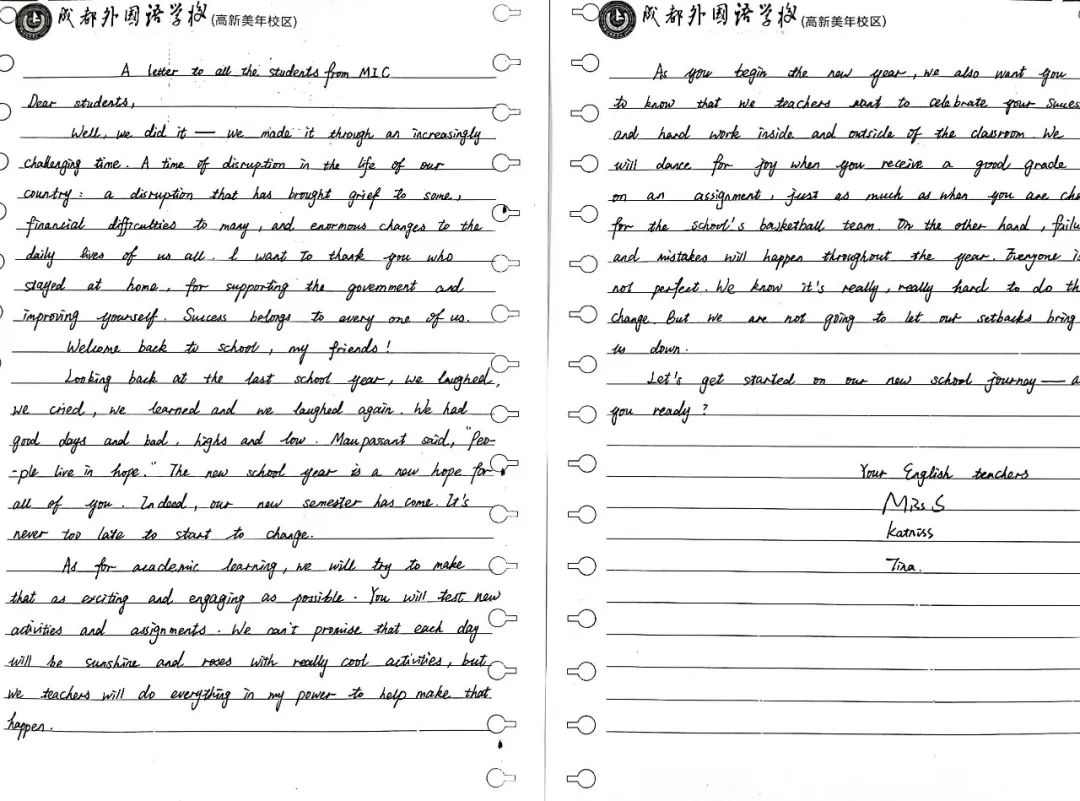 成都外国语学校 (高新美年校区)
A letter to all the students from MIC
Dear students,
Well, we did it — we made it through an increasingly
challenging time. A time of disruption in the life of our
country: a disruption that has brought grief to some,
financial difficulties to many, and enormous changes to the
daily lives of us all. I want to thank you who
stayed at home, for supporting the government and
improving yourself. Success belongs to every one of us.
Welcome back to school, my friends!
Looking back at the last school year, we laughed,
we cried, we learned and we laughed again. We had
good days and bad, highs and low. Maupassant said, "Peo-
-ple live in hope." The new school year is a new hope for
all of you. Indeed, our new semester has come. It's
never too late to start to change.
As for academic learning, we will try to make
that as exciting and engaging as possible. You will test new
activities and assignments. We can't promise that each day
will be sunshine and roses with really cool activities, but
we teachers will do everything in my power to help make that
happen.
成都外国语学校 (高新美年校区)
As you begin the new year, we also want you
to know that we teachers want to celebrate your
and hard work inside and outside of the classroom. We
will dance for joy when you receive a good grade
on an assignment, just as much as when you are
for the school's basketball team. On the other hand,
and mistakes will happen throughout the year. Everyone
not perfect. We know it's really, really hard to do
change. But we are not going to let our setbacks bring
us down.
Let's get started on our new school journey —
you ready?
Your English teachers
Miss S
Katniss
Tina.